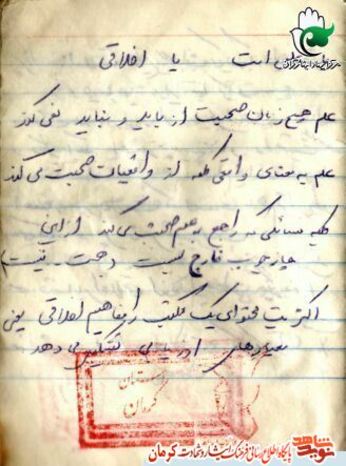 است یا اخلاقی
علم هیچ زمان صحبت از باید و نباید نمی کند
علم به معنای واقعی کلمه از واقعیات صحبت می کند
کلیه مسائلی که راجع به علم صحبت می کند از این
چارچوب خارج نیست (هست - نیست)
اکثریت محتوای یک مکتب را مفاهیم اخلاقی یعنی
ارزیابی تشکیل می دهد
استان
کرمان
نوید شاهد
پایگاه اطلاع رسانی فرهنگ ایثار و شهادت کرمان